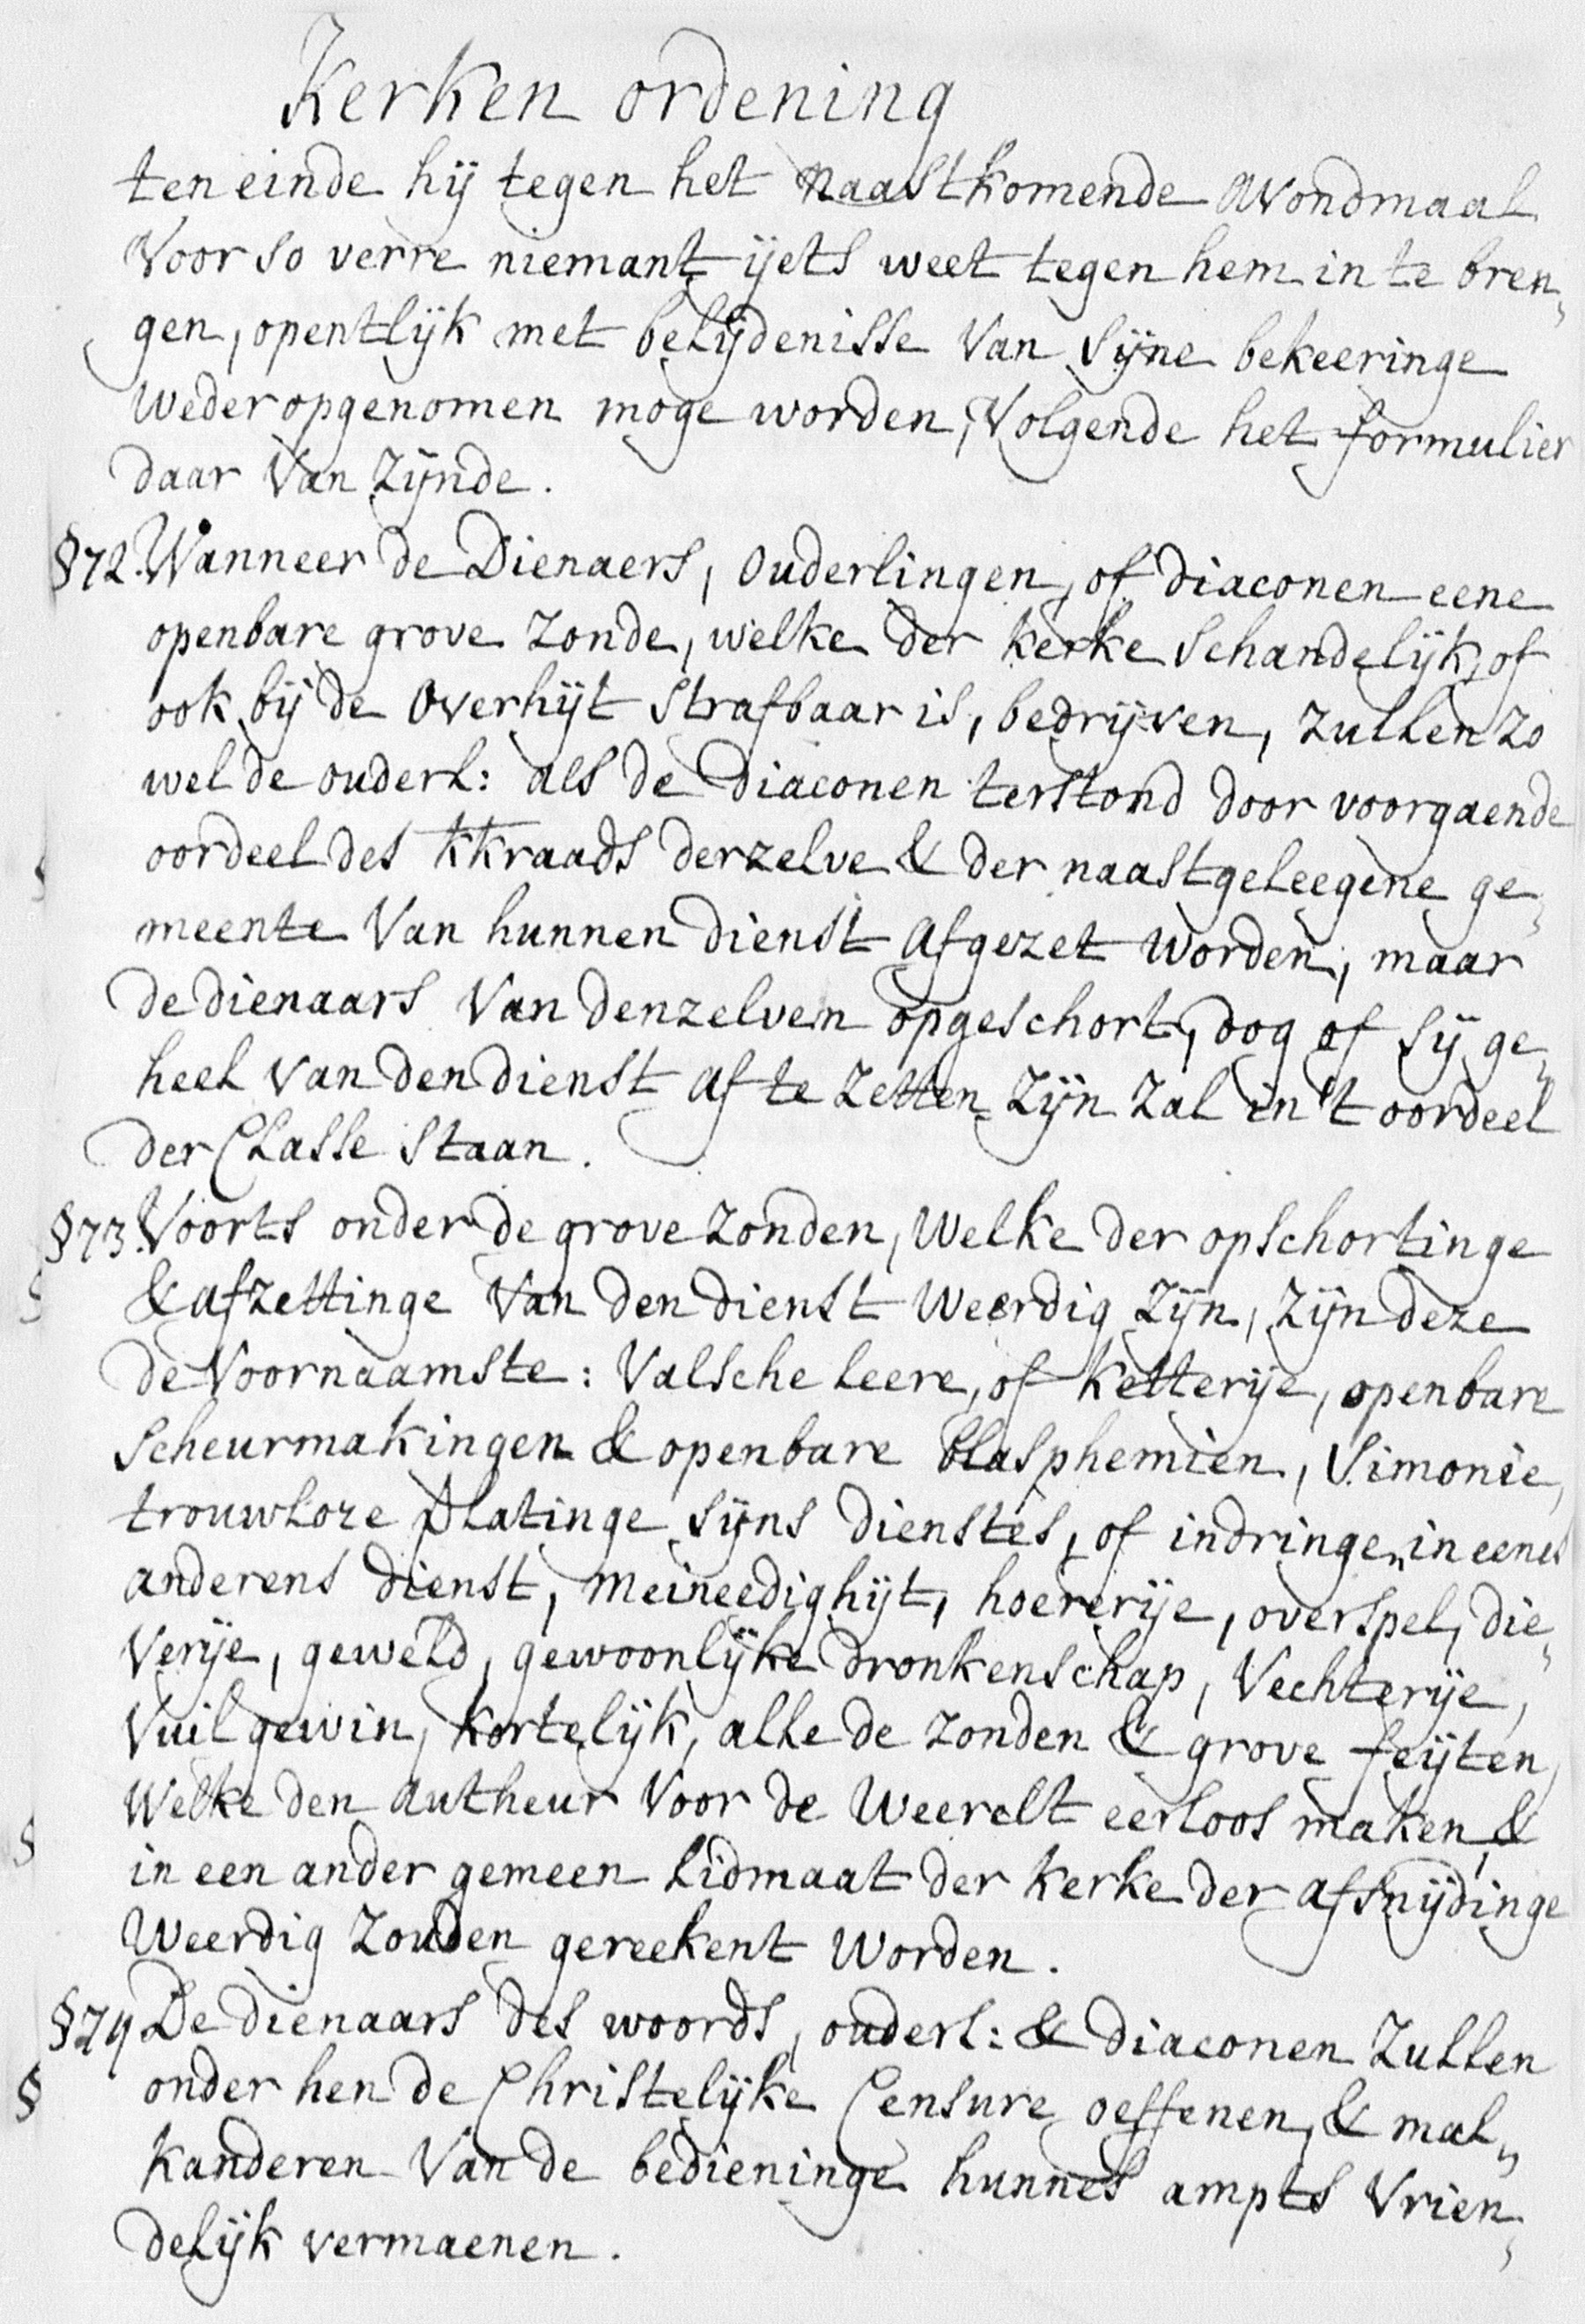 Kerken ordening
ten einde hij tegen het naastkomende Avondmaal
Voor so verre niemant ijets weet tegen hem in te bren„
gen, opentlijk met belijdenisse Van sijne bekeeringe
weder opgenomen moge worden, Volgende het formulier
daar Van Zijnde.
§72. Wanneer de Dienaers, ouderlingen, of diaconen eene
openbare grove zonde, welke der kerke schandelijk, of
ook bij de Overhijt strafbaar is, bedrijven, zullen zo
wel de ouderl: als de Diaconen terstond door voorgaende
oordeel des KKraads derzelve & der naastgeleegene ge„
meente Van hunnen dienst afgezet worden, maar
de dienaars Van denzelven opgeschort, dog of sij ge„
heel van den dienst af te zetten zijn zal in 't oordeel
der Classe staan.
§73. Voorts onder de grove zonden, welke der opschortinge
& afzettinge Van den dienst weerdig zijn, zijn deze
de Voornaamste: Valsche leere, of ketterije, openbare
scheurmakingen & openbare blasphemien, Simonie,
trouwloze Vlatinge sijns dienstes, of indringen in eenes
anderens dienst, meineedighijt, hoererije, overspel, die„
Verije, geweld, gewoonlijke dronkenschap, Vechterije,
Vuil gewin, kortelijk, alle de zonden & grove feijten,
Welke den autheur Voor de Weerelt eerloos maken, &
in een ander gemeen Lidmaat der kerke der afsnijdinge
Weerdig zouden gereekent worden.
§74 De dienaars des woords, ouderl: & diaconen zullen
§ onder hen de Christelijke Censure oeffenen, & mal„
kanderen Van de bedieninge hunnes ampts Vrien„
delijk vermaenen.